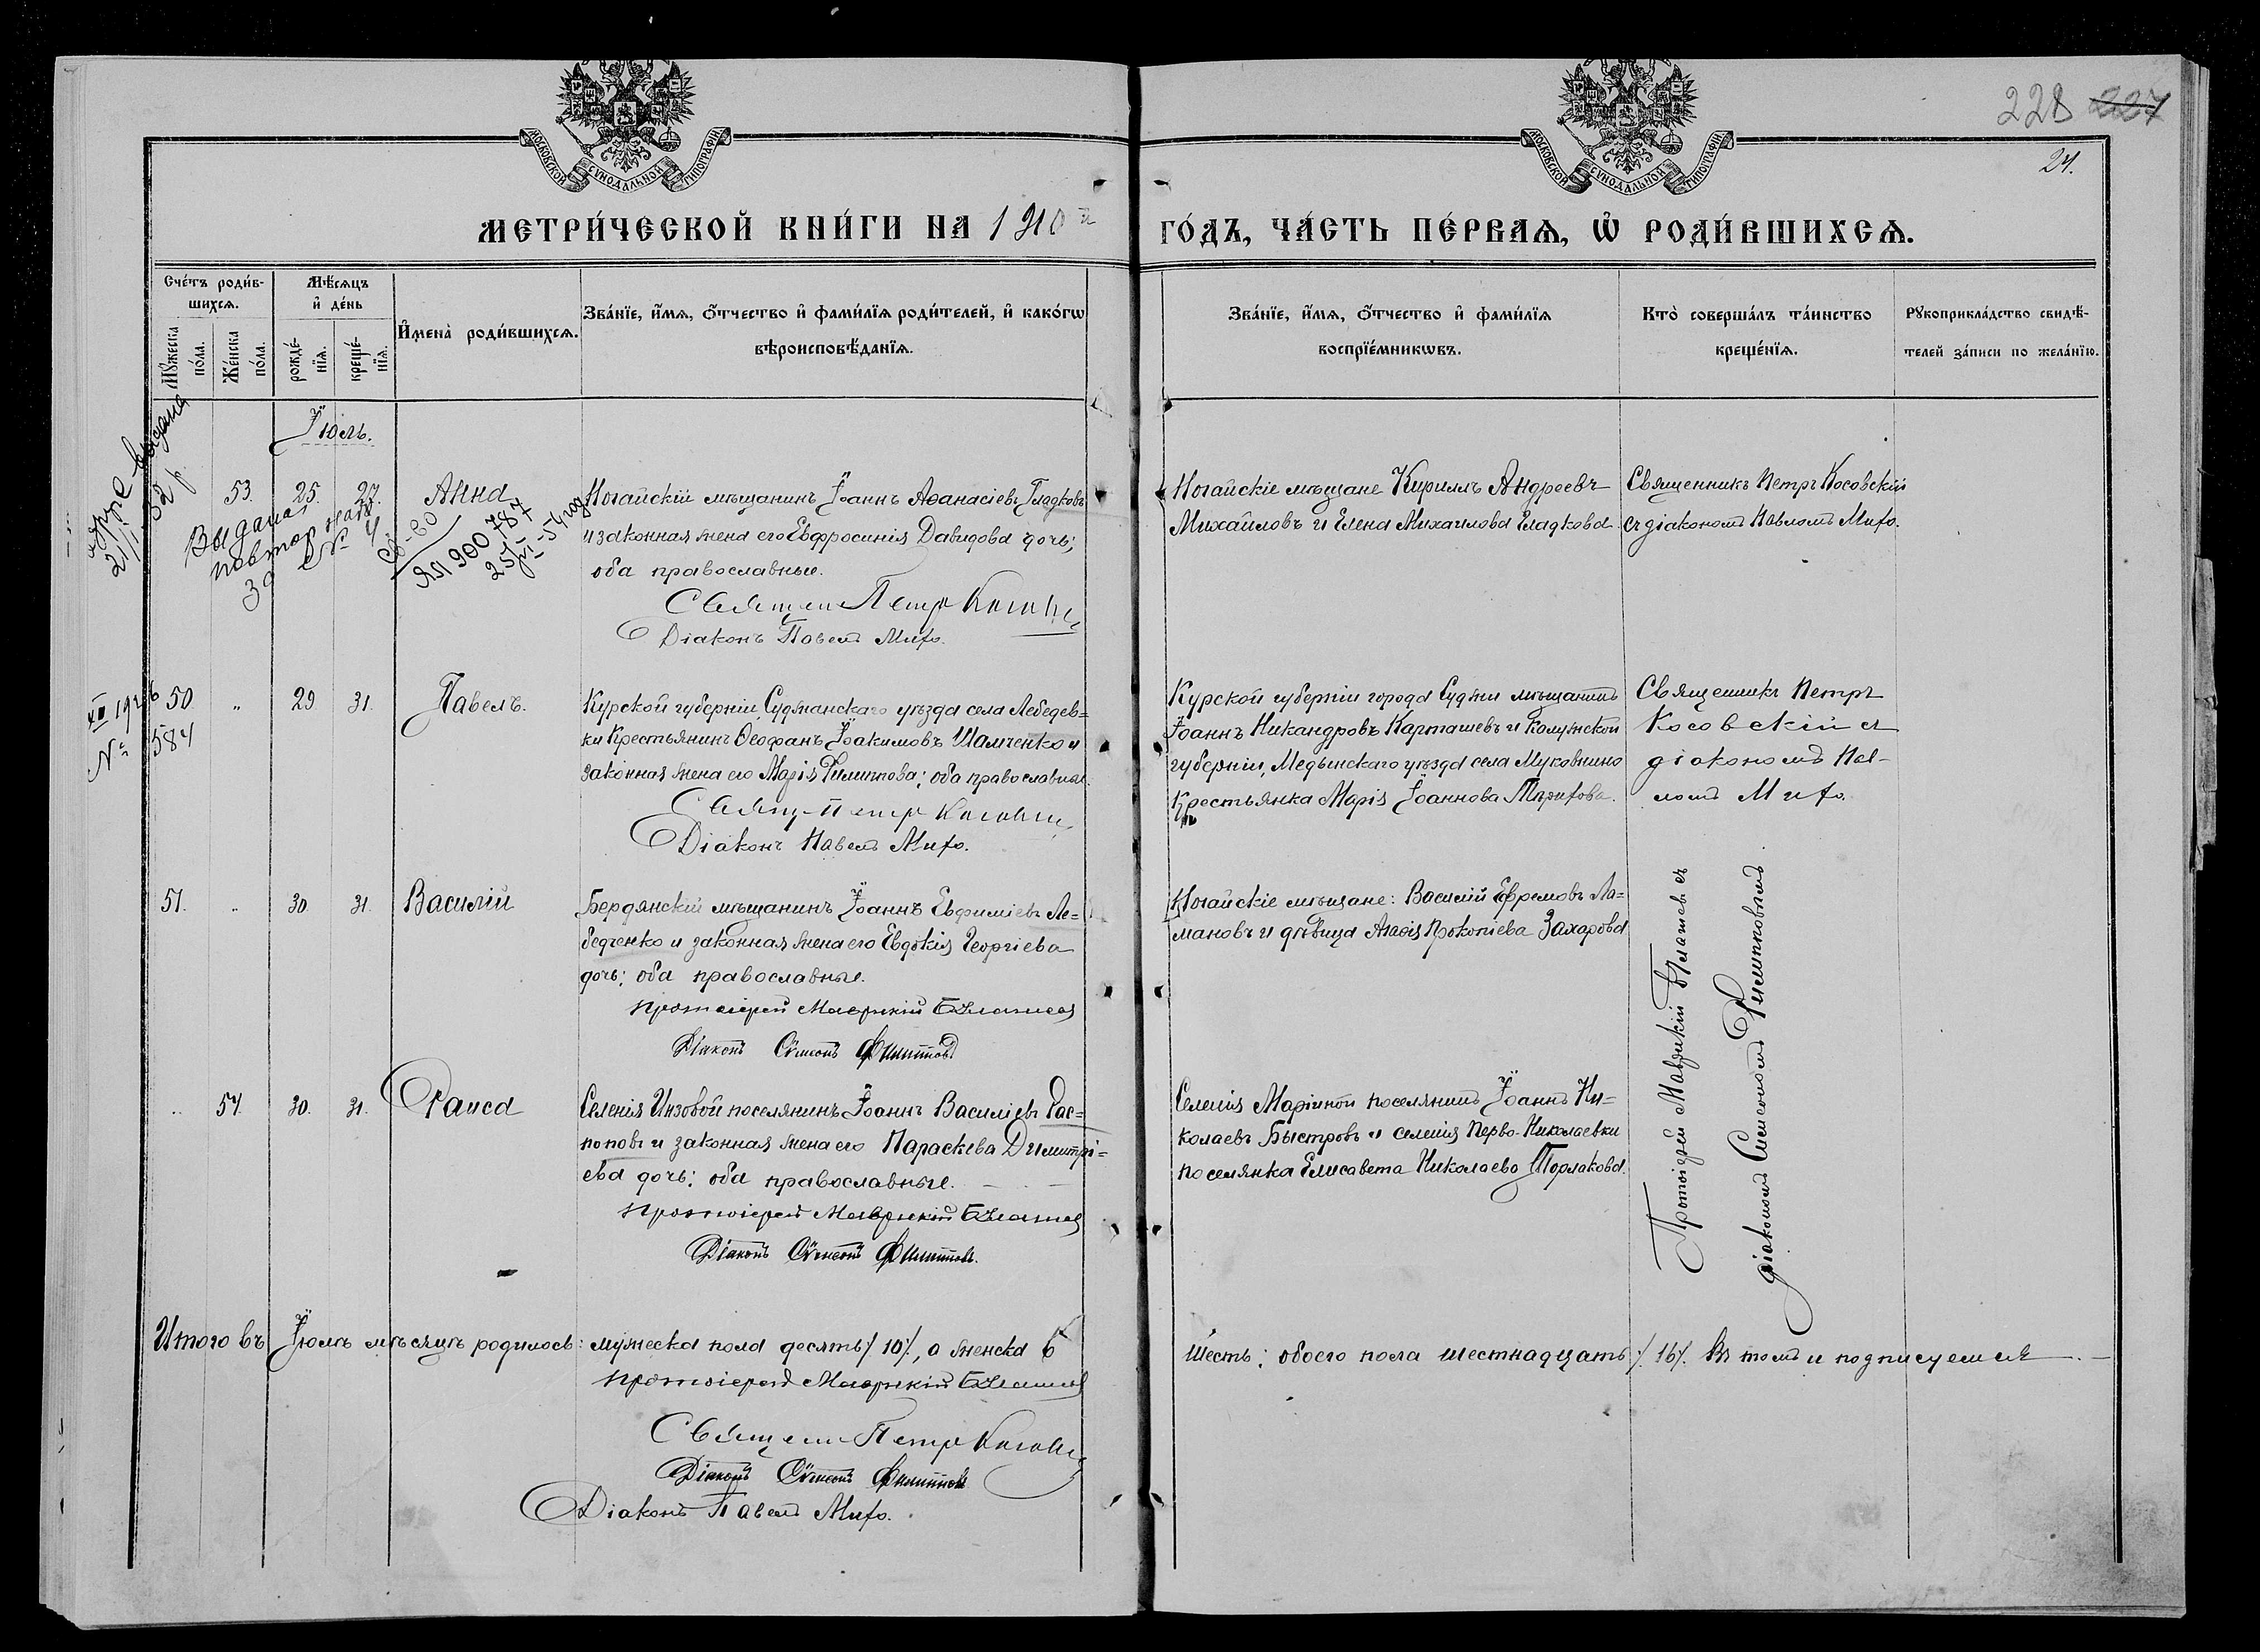 228 227
24.
МОСКОВСКОЙ СѴНОДАЛЬНОЙ ТИПОГРАФІИ
МОСКОВСКОЙ СѴНОДАЛЬНОЙ ТИПОГРАФІИ
МЕТРИ́ЧЕСКОЙ КНИ́ГИ НА 1910й ГО́ДЪ, ЧА́СТЬ ПЕ́РВАѦ, Ѡ҆ РОДИ́ВШИХСѦ.
Сче́тъ роди́в-
шихсѧ.
Мꙋ́жеска
по́ла.
Же́нска
по́ла.
Мѣ́сѧцъ
и҆ де́нь
рожде́-
нїѧ.
креще́-
нїѧ.
И҆мена̀ роди́вшихсѧ.
Зва́нїе, и҆́мѧ, ѻ҆́тчество и҆ фами́лїѧ роди́телей, и҆ како́гѡ
вѣроисповѣ́данїѧ.
Зва́нїе, и҆́мѧ, ѻ҆́тчество и҆ фами́лїѧ
воспрїе́мникѡвъ.
Кто̀ соверша́лъ та́инство
креще́нїѧ.
Рꙋкоприкла́дство свидѣ́-
телей за́писи по жела́нїю.
Іюль.
выдана
21/I 52 р.
53. 25. 27. Анна
Выдана
повтор
за № 4
ЯП 900787
25/VI-54 год
Ногайскій мѣщанинъ Іоаннъ Аѳанасіевъ Гладковъ
и законная жена его Евфросинія Давидова дочь;
оба православные.
Священ Петръ Косовскі
Діаконъ Павелъ Мифо.
Ногайскіе мѣщане Кириллъ Андреевъ
Михайловъ и Елена Михаилова Гладкова.
Священникъ Петръ Косовскій
съ діакономъ Павломъ Мифо.
XII 1926
№ 584
50 " 29 31. Павелъ.
Курской губерніи, Суджанскаго уѣзда села Лебедев=
ки Крестьянинъ Ѳеофанъ Іоакимовъ Шамченко и
законная жена его Марія Филиппова; оба православные.
Свящ. Петръ Косовскі
Діаконъ Павелъ Мифо.
Курской губерніи города Суджи мѣщанинъ
Іоаннъ Никандровъ Карташевъ и Калужской
губерніи, Медынскаго уѣзда села Муковнино
Крестьянка Марія Іоаннова Трифова.
Священникъ Петръ
Косовскій съ
діакономъ Пав-
ломъ Мифо.
51. " 30. 31. Василій
Бердянскій мѣщанинъ Іоаннъ Евфиміевъ Ле=
бедченко и законная жена его Евдокія Георгіева
дочь; оба православные.
Протоіерей Маврикій Благшев
Діаконъ Сѵмеонъ Филипповъ
Ногайскіе мѣщане: Василій Ефремовъ Ла=
мановъ и дѣвица Агаѳія Прокопіева Захарова
" 54. 30. 31. Раиса
Селенія Инзовой поселянинъ Іоаннъ Василіевъ Рас=
поповъ и законная жена его Параскева Димитрі=
ева дочь; оба православные.
Протоіерей Маврикій
Діаконъ Сѵмеонъ Филипповъ.
Селенія Маріиной поселянинъ Іоаннъ Ни=
колаевъ Быстровъ и селенія Перво-Николаевки
поселянка Елисавета Николаева Торлакова.
Протоіерей Маврикій съ
діакономъ Симеономъ Филипповымъ.
Итого въ Іюлѣ мѣсяцѣ родилось: мужеска пола десять /10/, а женска 6 шесть; обоего пола шестнадцать /16/. Въ томъ и подписуемся
Протоіерей Маврикій
Священ Петръ Косовскі
Діаконъ Сѵмеонъ Филипповъ
Діаконъ Павелъ Мифо.